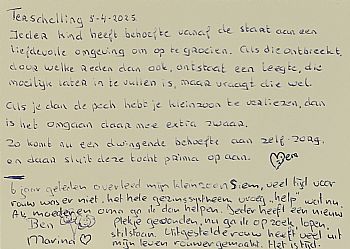 Terschelling 5-4-2025.
Ieder kind heeft behoefte vanaf de start aan een
liefdevolle omgeving om op te groeien. Als die ontbreekt
door welke reden dan ook, ontstaat een leegte, die
moeilijk later in te vullen is, maar vraagt die wel.
Als je dan de pech hebt je kleinzoon te verliezen, dan
is het omgaan daar mee extra zwaar.
Zo komt nu een dwingende behoefte aan zelf-zorg.
en daar sluit deze tocht prima op aan.
6 jaar geleden overleed mijn kleinzoon Siem, veel tijd voor
rouw was er niet. het hele gezinssysteem vroeg "help" wat nu.
Als moeder en oma ga ik dan helpen. Ieder heeft een nieuw
Ben plekje gevonden, nu ga ik op zoek, lopen,
stilstaan. Uitgestelde rouw heeft veel uit
Marina mijn leven rouwer gemaakt. Het is tijd.